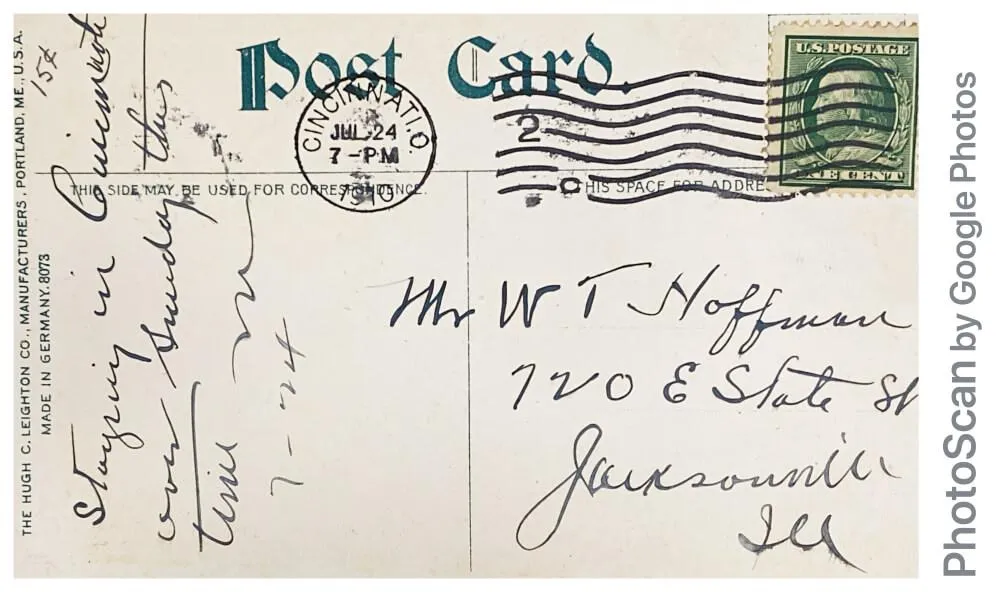 Post Card.
U.S. POSTAGE
ONE CENT
CINCINNATI. O.
JUL 24
7-PM
1910
2
O
THIS SIDE MAY BE USED FOR CORRESPONDENCE.
THIS SPACE FOR ADDRE
THE HUGH C. LEIGHTON CO., MANUFACTURERS, PORTLAND, ME., U.S.A.
MADE IN GERMANY. 8073
15¢
Staying in Cincinnati
over Sunday this
time
7-24
Mr W T Hoffman
720 E State St
Jacksonville
Ill
PhotoScan by Google Photos